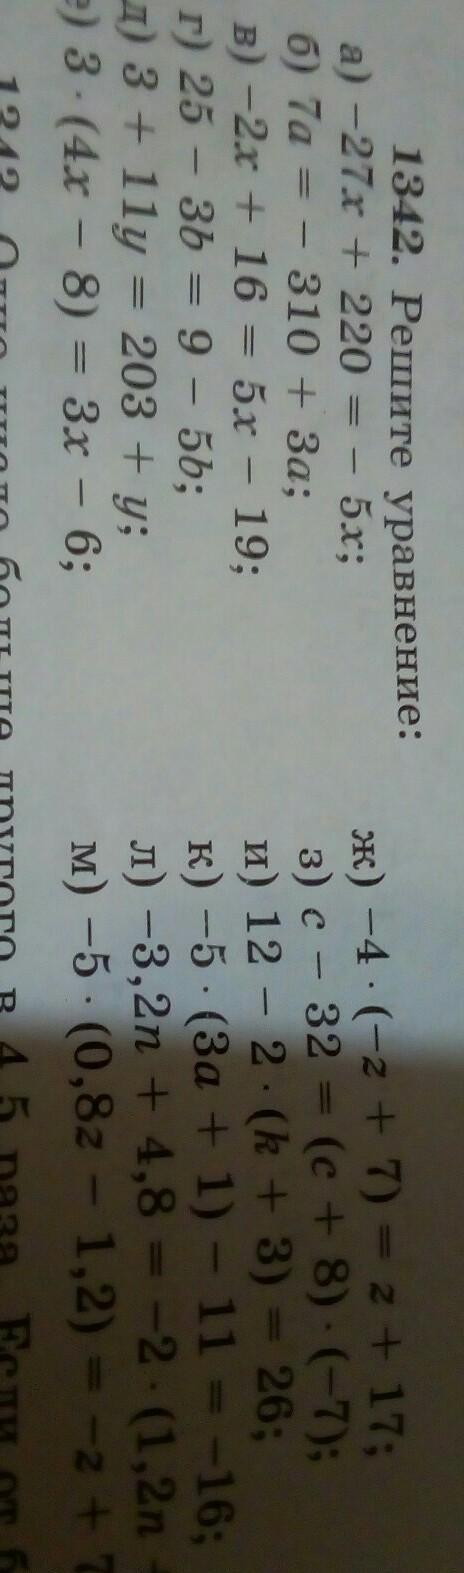 1342. Решите уравнение:
а) −27x + 220 = − 5x;
б) 7a = − 310 + 3a;
в) −2x + 16 = 5x − 19;
г) 25 − 3b = 9 − 5b;
д) 3 + 11y = 203 + y;
е) 3 · (4x − 8) = 3x − 6;
ж) −4 · (−z + 7) = z + 17;
з) c − 32 = (c + 8) · (−7);
и) 12 − 2 · (k + 3) = 26;
к) −5 · (3a + 1) − 11 = −16;
л) −3,2n + 4,8 = −2 · (1,2n +
м) −5 · (0,8z − 1,2) = −z + 7
1343. Одно число больше другого в 4,5 раза. Если от б